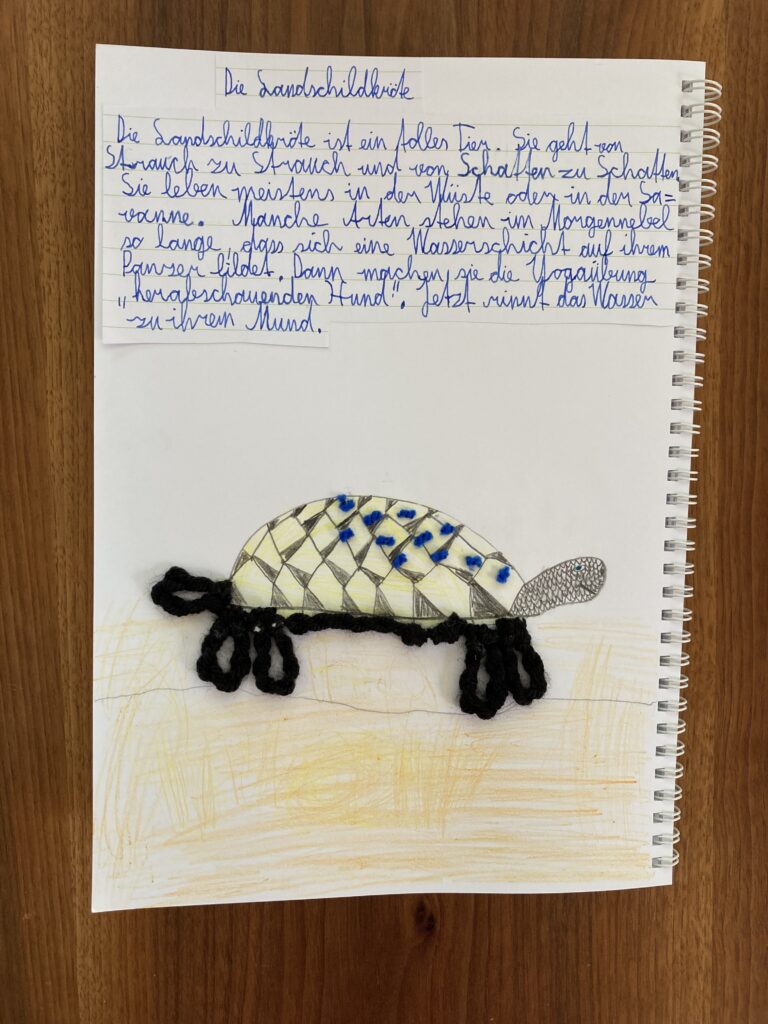 Die Landschildkröte
Die Landschildkröte ist ein tolles Tier. Sie geht von
Strauch zu Strauch und von Schatten zu Schatten
Sie leben meistens in der Wüste oder in der Sa=
vanne. Manche Arten stehen im Morgennebel
so lange, dass sich eine Wasserschicht auf ihrem
Panzer bildet. Dann machen sie die Yogaübung
„herabschauenden Hund". Jetzt rinnt das Wasser
zu ihrem Mund.